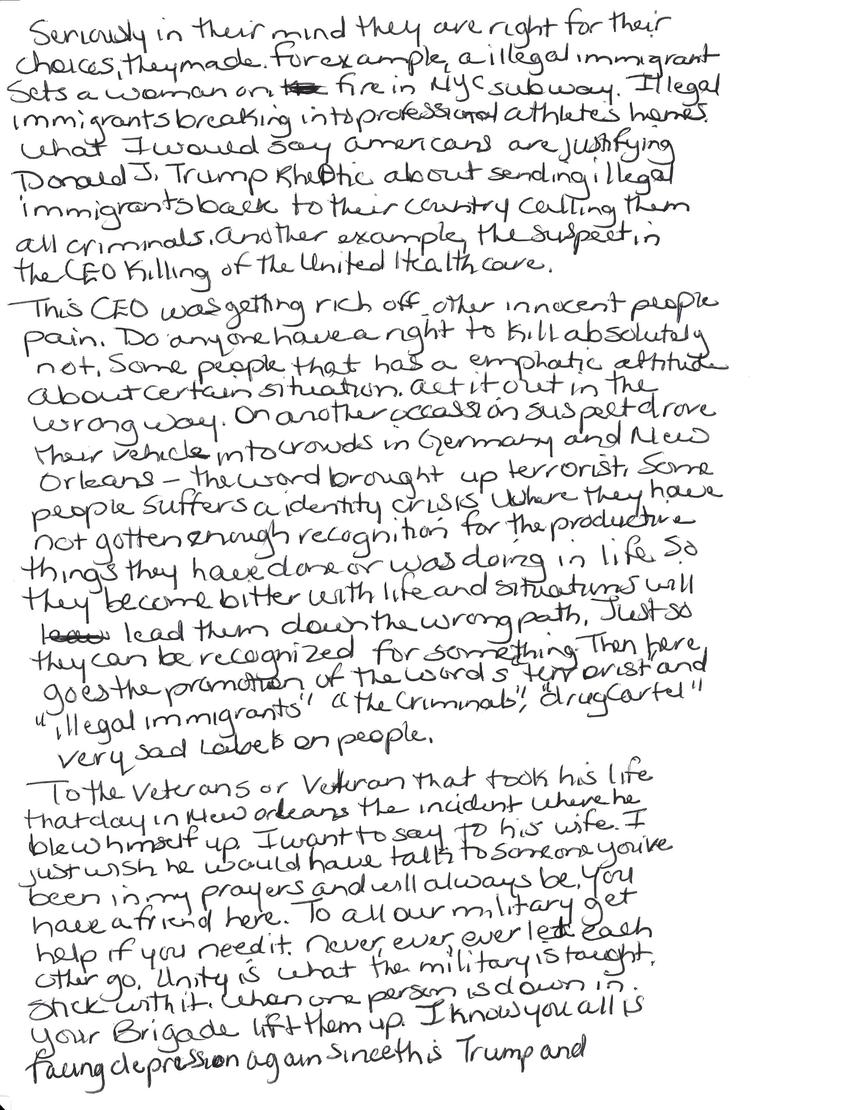 Seriously in their mind they are right for their
choices, they made. for example, a illegal immigrant
sets a woman on fire in NYC subway. Illegal
immigrants breaking into professional athlete's homes.
what I would say americans are justifying
Donald J. Trump Rhetic about sending illegal
immigrants back to their country calling them
all criminals. another example, the suspect in
the CEO killing of the United Healthcare.
This CEO was getting rich off other innocent people
pain. Do anyone have a right to kill absolutely
not. Some people that has a emphatic attitude
about certain situation. act it out in the
wrong way. On another occassion suspect drove
their vehicle into crowds in Germany and New
Orleans - the word brought up terrorist. Some
people suffers a identity crisis where they have
not gotten enough recognition for the productive
things they have done or was doing in life. So
they become bitter with life and situations will
lead them down the wrong path. Just so
they can be recognized for something. Then here
goes the promotion of the words "terrorist" and
"illegal immigrants" "the Criminals", "drug Cartel"
very sad labels on people.
To the Veterans or Veteran that took his life
that day in New orleans the incident where he
blew hmself up. I want to say to his wife. I
just wish he would have talk to someone you've
been in my prayers and will always be. You
have a friend here. To all our military get
help if you need it. never, ever, ever let each
other go. Unity is what the military is taught.
Stick with it. when one person is down in
your Brigade lift them up. I know you all is
facing depression again since this Trump and